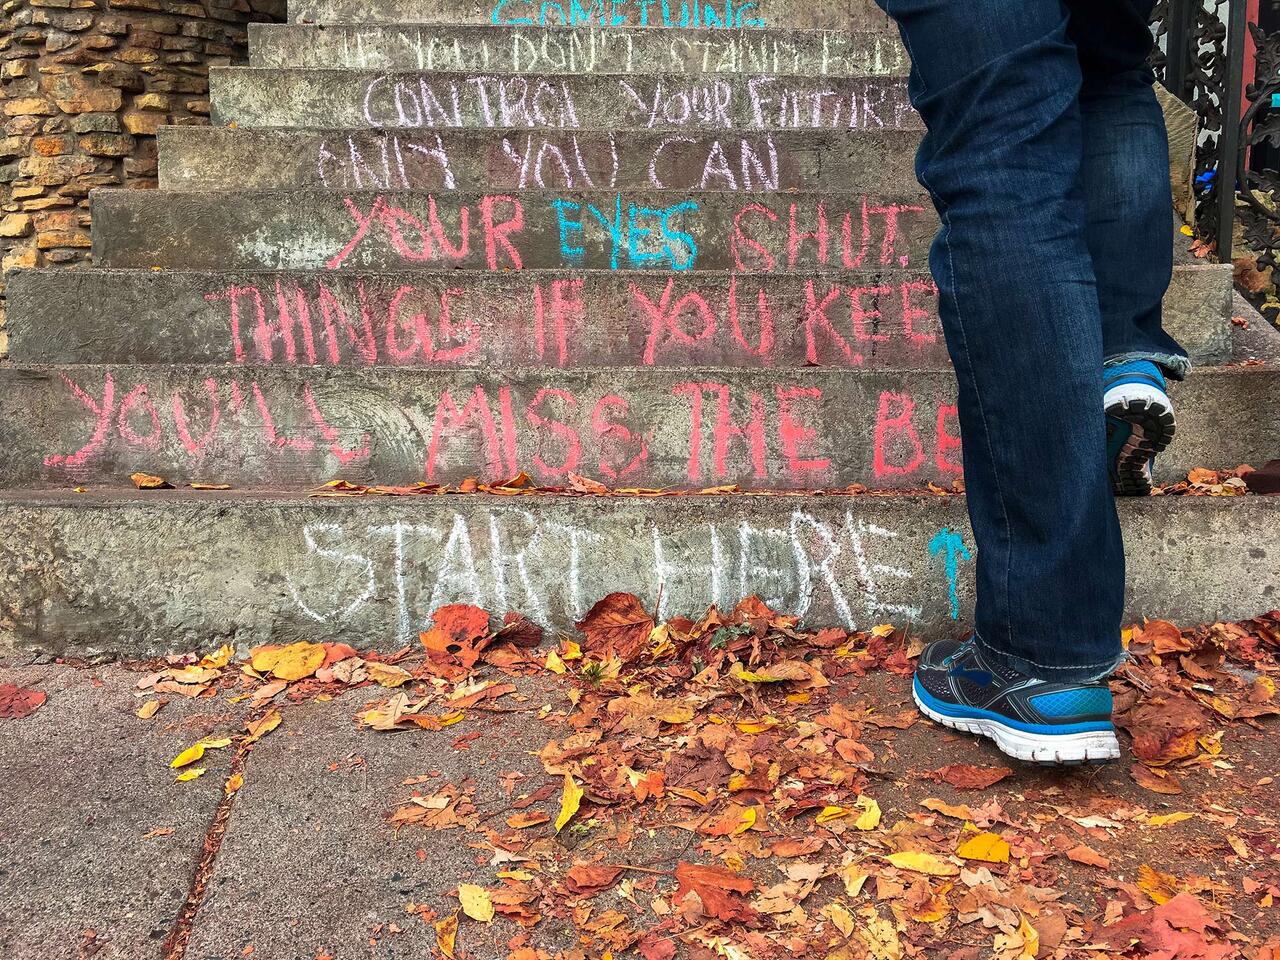 SOMETHING
IF YOU DON'T STAND FO
CONTROL YOUR FUTURE
ONLY YOU CAN
YOUR EYES SHUT.
THINGS IF YOU KEE
YOU'LL MISS THE BE
START HERE ↑